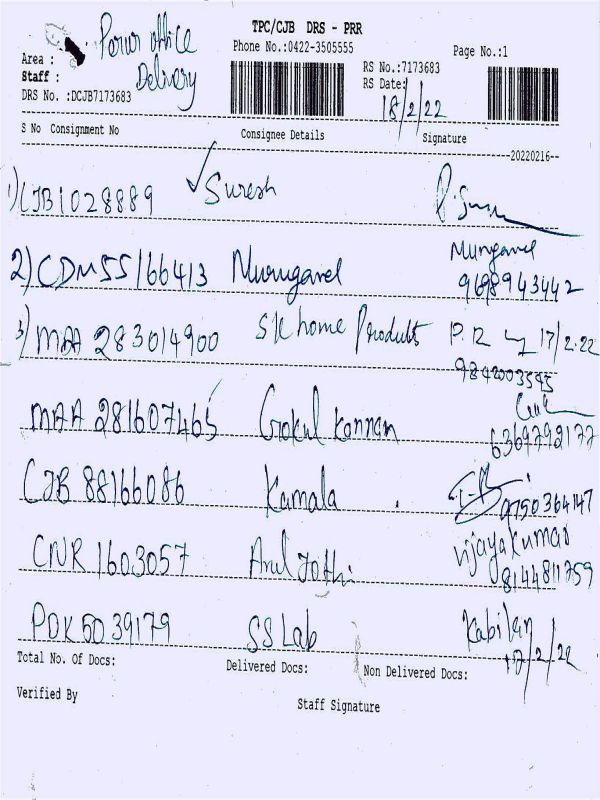 TPC/CJB DRS - PRR
Phone No.:0422-3505555
Page No.:1
Area : Perur office
Staff : Delivery
DRS No. :DCJB7173683
RS No.:7173683
RS Date: 18/2/22
S No Consignment No Consignee Details Signature
20220216
1) CJB1028889 Suresh P. Sure
2) CDM55166413 Murugavel Murugavel
9698943442
3) MAA 283014900 SK home Products P.R 17/2.22
9842003545
MAA 281607465 Gokul Kannan
6369792177
CJB 88166086 Kamala 9750364147
CNR 1603057 Arul Jothi Vijayakumar
8144811759
PDK5039179 SS Lab Kabilan
17/2/22
Total No. Of Docs: Delivered Docs: Non Delivered Docs:
Verified By Staff Signature